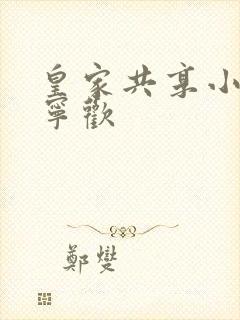 皇家共享小
寧歡
鄭燮